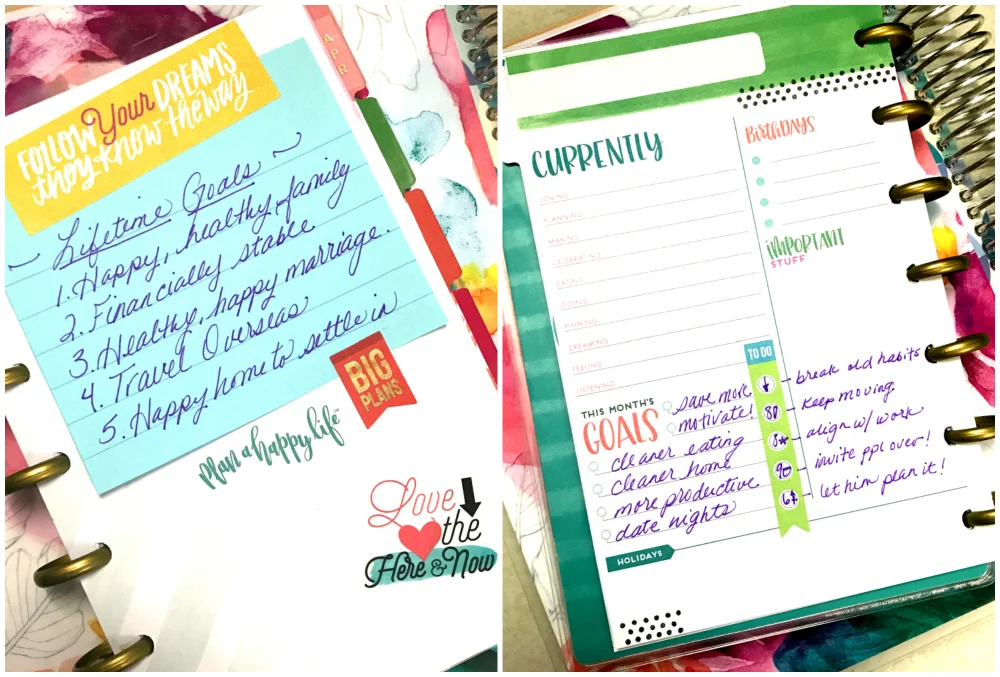 APR
FOLLOW Your DREAMS
they know the way
~ Lifetime Goals ~
1. Happy, healthy, family
2. Financially stable
3. Healthy, happy marriage.
4. Travel Overseas
5. Happy home to settle in
BIG
PLANS
Plan a happy life™
Love
the
Here & Now
CURRENTLY
LOVING
PLANNING
MAKING
CELEBRATING
EATING
GOING
PINNING
DREAMING
FEELING
LISTENING
BIRTHDAYS
IMPORTANT
STUFF
THIS MONTH'S
GOALS
save more
motivate!
cleaner eating
cleaner home
more productive
date nights
TO DO
- break old habits
- keep moving
- align w/ work
- invite ppl over!
- let him plan it!
HOLIDAYS